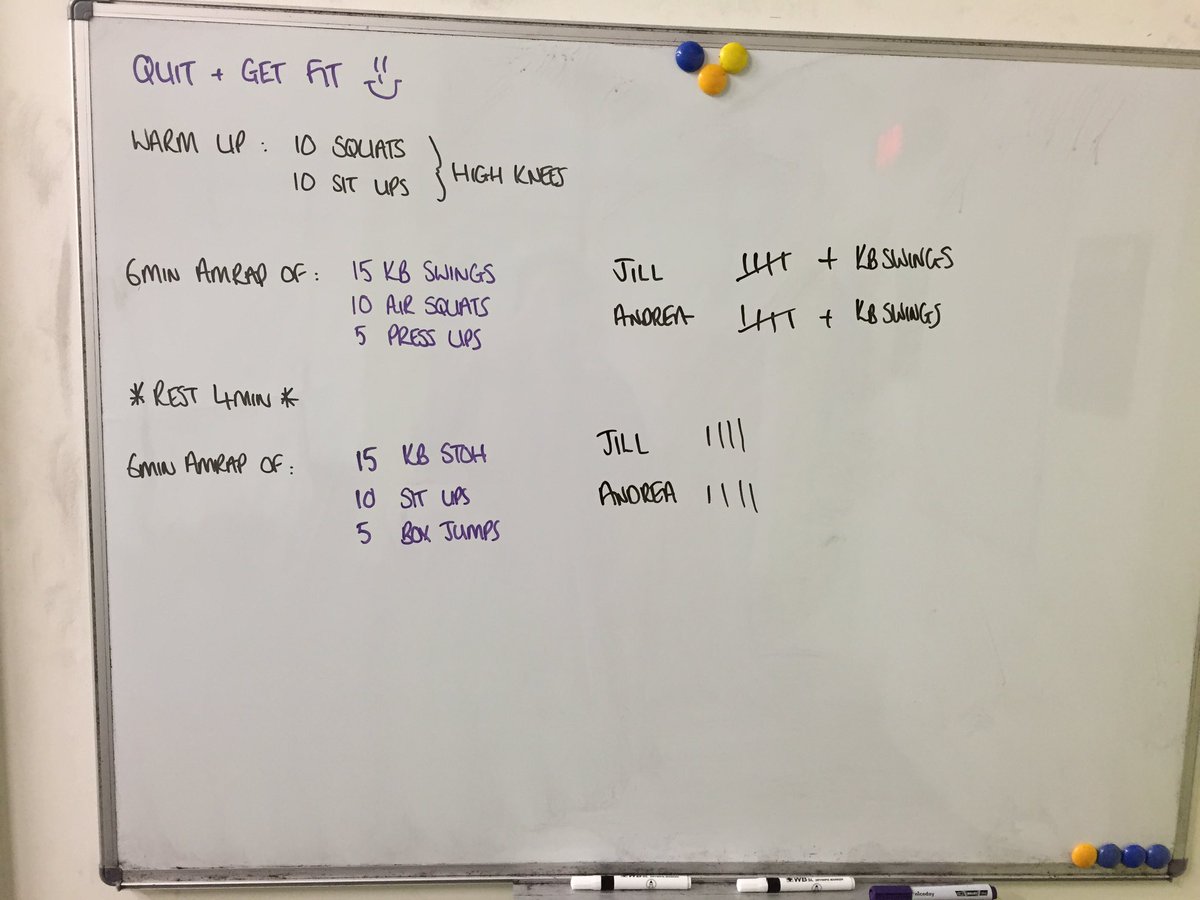 QUIT + GET FIT
WARM UP : 10 SQUATS
10 SIT UPS
} HIGH KNEES
6MIN AMRAP OF : 15 KB SWINGS
10 AIR SQUATS
5 PRESS UPS
JILL 𝍸 + KB SWINGS
ANDREA 𝍸 + KB SWINGS
* REST 4MIN *
6MIN AMRAP OF : 15 KB STOH
10 SIT UPS
5 BOX JUMPS
JILL ||||
ANDREA ||||
WB
niceday